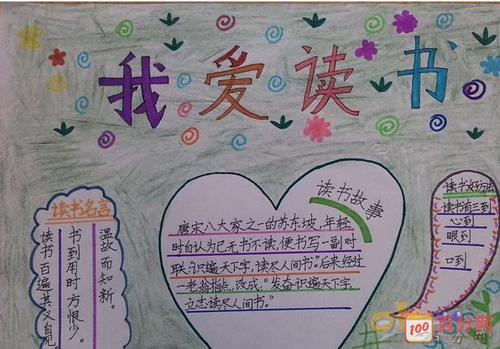 我爱读书
读书名言
温故而知新。
书到用时方恨少。
读书百遍其义自见
读书故事
唐宋八大家之一的苏东坡,年轻
时自认为已无书不读,便书写一副对
联:"识遍天下字,读尽人间书"。后来经过
一老翁指点,改成:"发奋识遍天下字,
立志读尽人间书。"
读书好方法
读书有三到
心到
眼到
口到
100
百分网
百分网